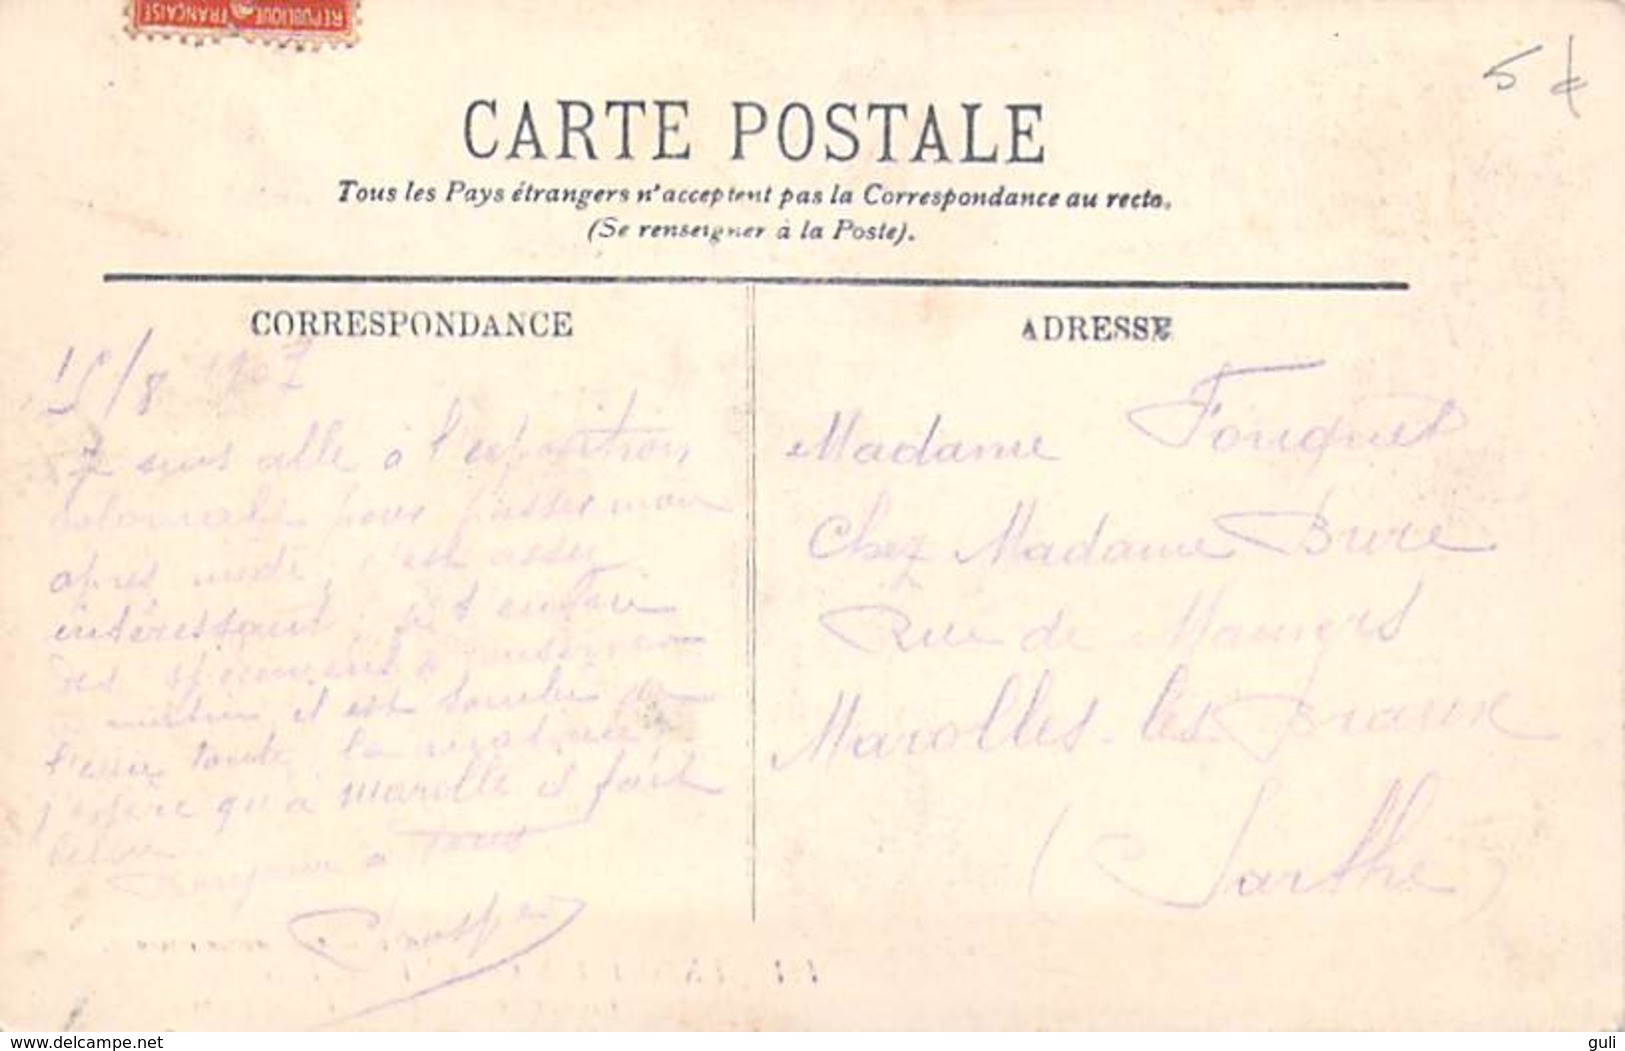 RÉPUBLIQUE FRANÇAISE
5 €
CARTE POSTALE
Tous les Pays étrangers n'acceptent pas la Correspondance au recto.
(Se renseigner à la Poste).
CORRESPONDANCE
15/8 1907
Je suis allé à l'exposition
coloniale pour passer mon
après midi, c'est assez
intéressant,
des
matin, il est tombé de
l'eau toute la
j'espère qu'à Marolle il fait
Bonjour à tous
ADRESSE
Madame Fouquet
Chez Madame Bure
Rue de
Marolles-les-Braux
(Sarthe)
www.delcampe.net
guli